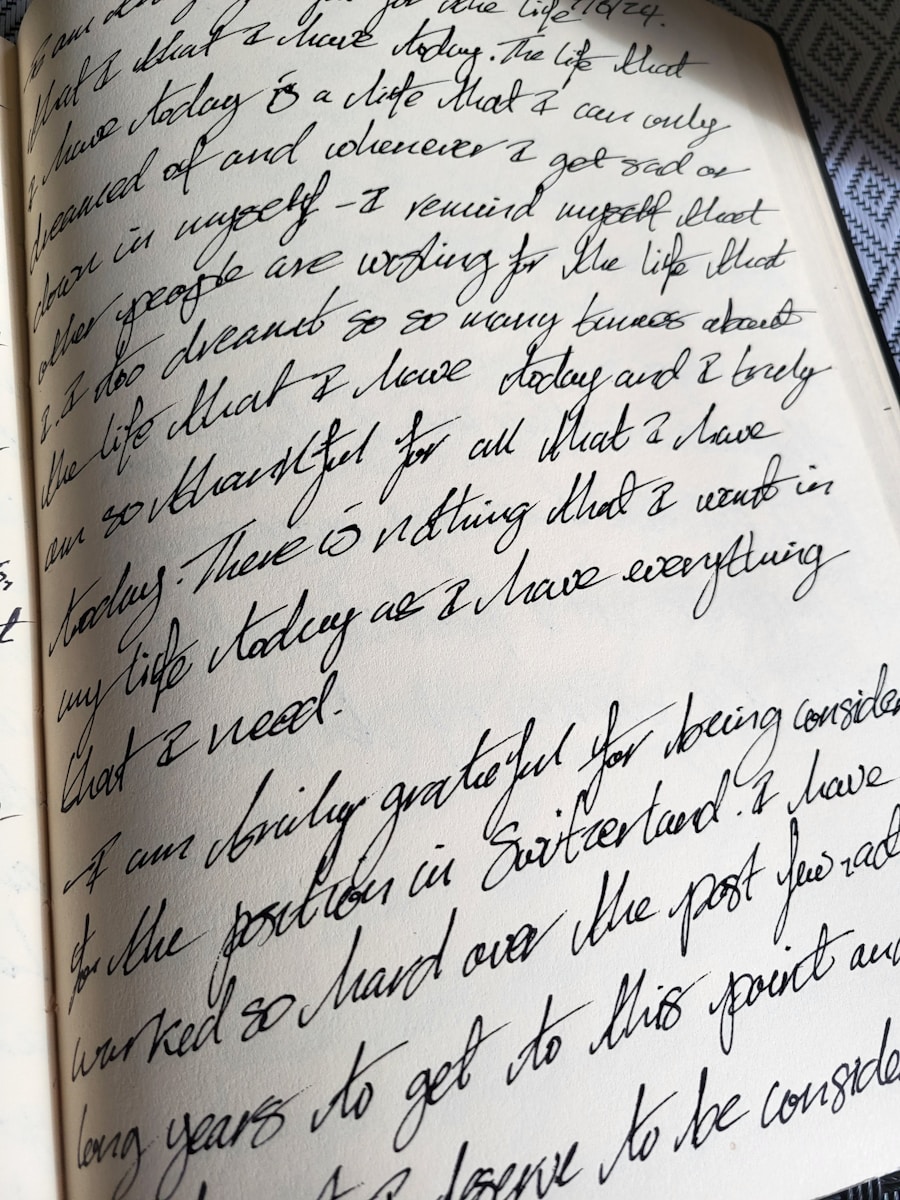 for the life 7/6/24.
that I that I have today. The life that
I have today is a life that I can only
dreamed of and whenever I get sad or
down in myself - I remind myself that
other people are wishing for the life that
I. I too dreamt so so many times about
the life that I have today and I truly
am so thankful for all that I have
today. There is nothing that I want in
my life today as I have everything
that I need.
I am truly grateful for being consider
for the position in Switzerland. I have
worked so hard over the past few
long years to get to this point and
I deserve to be conside